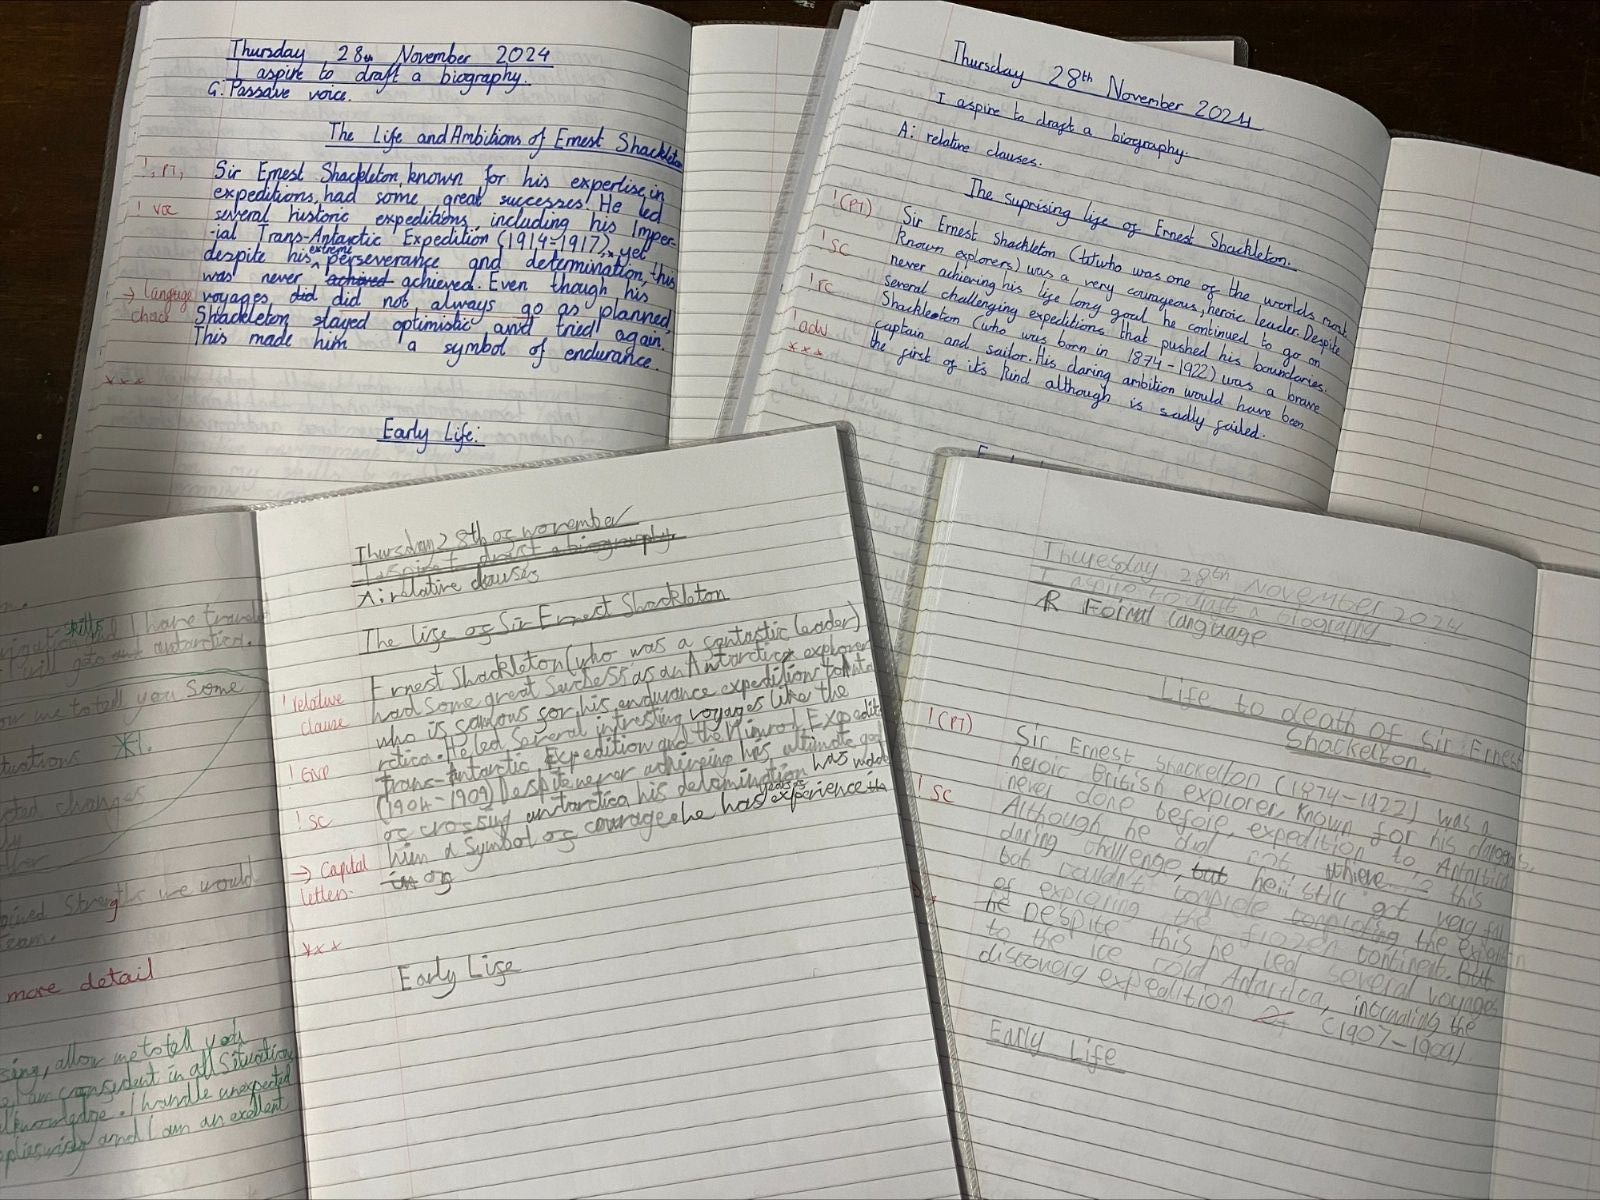 Thursday 28th November 2024
I aspire to draft a biography.
G: Passave voice.
The Life and Ambitions of Ernest Shackleton
!, PT,
Sir Ernest Shackleton, known for his expertise in
expeditions, had some great successes! He led
! voc
several historic expeditions, including his Imper-
-ial Trans-Antarctic Expedition (1914-1917), yet
despite his extreme perseverance and determination, this
was never achieved achieved. Even though his
→ language
voyages did did not always go as planned,
choice
Shackleton stayed optimistic and tried again.
This made him a symbol of endurance.
***
Early Life:
Thursday 28th November 2024
I aspire to draft a biography.
A: relative clauses.
The suprising life of Ernest Shackleton.
!(PT)
Sir Ernest Shackleton (who was one of the worlds most
! SC
known explorers) was a very courageous, heroic leader. Despite
never achieving his life long goal he continued to go on
! rc
several challenging expeditions that pushed his boundaries.
Shackleton (who was born in 1874-1922) was a brave
! adv
captain and sailor. His daring ambition would have been
***
the first of it's kind although is sadly failed.
Thursday 28th of november
I aspire t draft a biography.
A: relative clauses
The life of Sir Ernest Shackleton
Ernest Shackleton (who was a fantastic leader)
! relative
had some great as an Antarctic explorer
clause
who is famous for his endurance expedition to
rctica. He led several intresting voyages like the
! GNP
Trans-Antarctic Expedition and the Nimrod Expedit
(1904-1909) Despite never achieving his ultimate goal
! SC
of crossing antarctica his detamination has made
him a symbol of courage he has years of experience in
→ Capital
in of
letters.
***
Early Life
Thuresday 28th November 2024
I aspire to draft a biography
R Formal language
Life to death of Sir Ernest
Shackelton.
!(PT)
Sir Ernest Shackelton (1874-1922) was a
heroic British explorer, known for his
never done before, expedition to
! SC
Although he did not this
daring challenge, but he still got very
but couldn't complete the
of exploring the frozen continent. But
he Despite this he led several voyages
to the ice cold Antartica, the
discovery expedition (1907-1909)
Early Life
skills I have
antarctica.
me to tell you some
changes
we would
team.
more detail
allow me to tell you
I am in all Situations
knowledge. I handle unexpected
and I am an